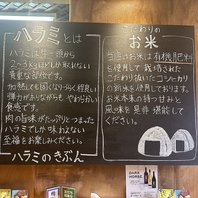 ハラミとは
ハラミは牛一頭から
2〜3kgほどしか取れない
貴重な部位です。
加熱しても固くなりづらく程良い
弾力がありながらも、やわらかい
食感です。
肉の旨味がたっぷりとつまった
ハラミでしか味わえない
至福をお楽しみください。
ハラミのきぶん
こだわりの
お米
当店のお米は有機肥料
を使用して栽培された
こだわり抜いたコシヒカリ
の新米を使用しております。
お米本来の持つ甘みと
風味を是非堪能して
ください。
DARK HORSE